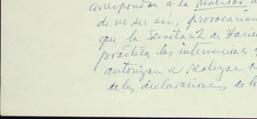 correspondan a la realidad
de no ser así, provocarían
que la Secretaría de Hacien
práctica las intervenciones
autorizan a realizar
de las declaraciones de l